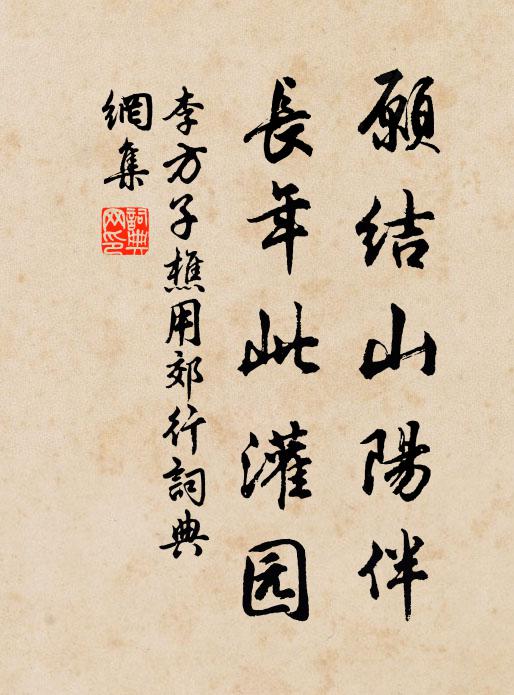 願结山陽伴
長年此灌园
李方子樵用郊行詞典
網集
詞典
网印